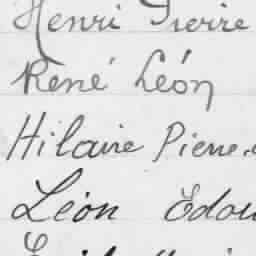 Henri Pierre
René Léon
Hilaire Pierre
Léon Edou